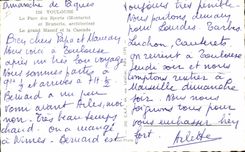 Dimanche de Pâques
DE TOULOUSE
Le Parc des Sports (Montariol
et Brunerie, architectes)
Le grand Miroir et la Cascade
Bien cher Papa et Maman
Nous voici à Toulouse
après un très bon voyage
Nous sommes partis à
et arrivés à
Bernard est un peu
avant Arles, moi
non. Très beau temps
chaud. On a mangé
à Nîmes. Bernard est
toujours très pénible
Nous partons demain
pour Lourdes Tarbes
Luchon, Cauterets
on revient à Toulouse
jeudi soir et nous
comptons rentrer à
Marseille dimanche
soir. Nous nous
joignons tous pour
vous embrasser bien
fort
Arlette